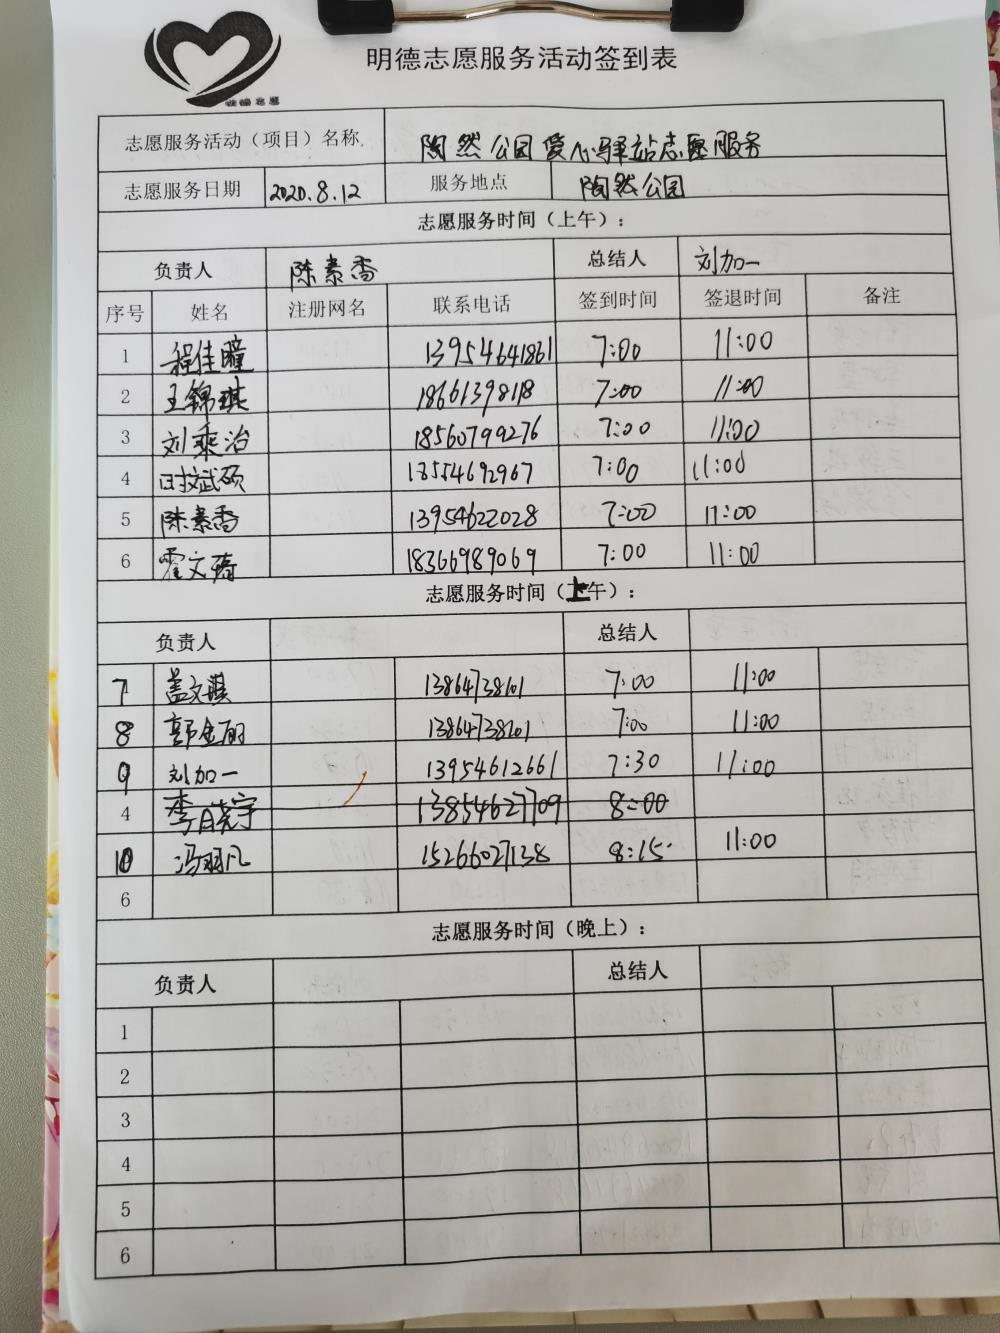 明德志愿
明德志愿服务活动签到表
志愿服务活动（项目）名称 陶然公园爱心驿站志愿服务
志愿服务日期 2020.8.12 服务地点 陶然公园
志愿服务时间（上午）：
负责人 陈素香 总结人 刘加一
序号 姓名 注册网名 联系电话 签到时间 签退时间 备注
1 程佳瞳 13954641861 7:00 11:00
2 王锦琪 18661398118 7:00 11:00
3 刘乘治 18560799276 7:00 11:00
4 时斌硕 13554692967 7:00 11:00
5 陈素香 13954622028 7:00 11:00
6 霍文琦 18366989069 7:00 11:00
志愿服务时间（上午）：
负责人 总结人
7 盖文琪 13864738101 7:00 11:00
8 郭金丽 13864738201 7:00 11:00
9 刘加一 13954612661 7:30 11:00
4 李晓宇 13854627709 8:00
10 冯羽凡 15266027138 8:15 11:00
6
志愿服务时间（晚上）：
负责人 总结人
1
2
3
4
5
6